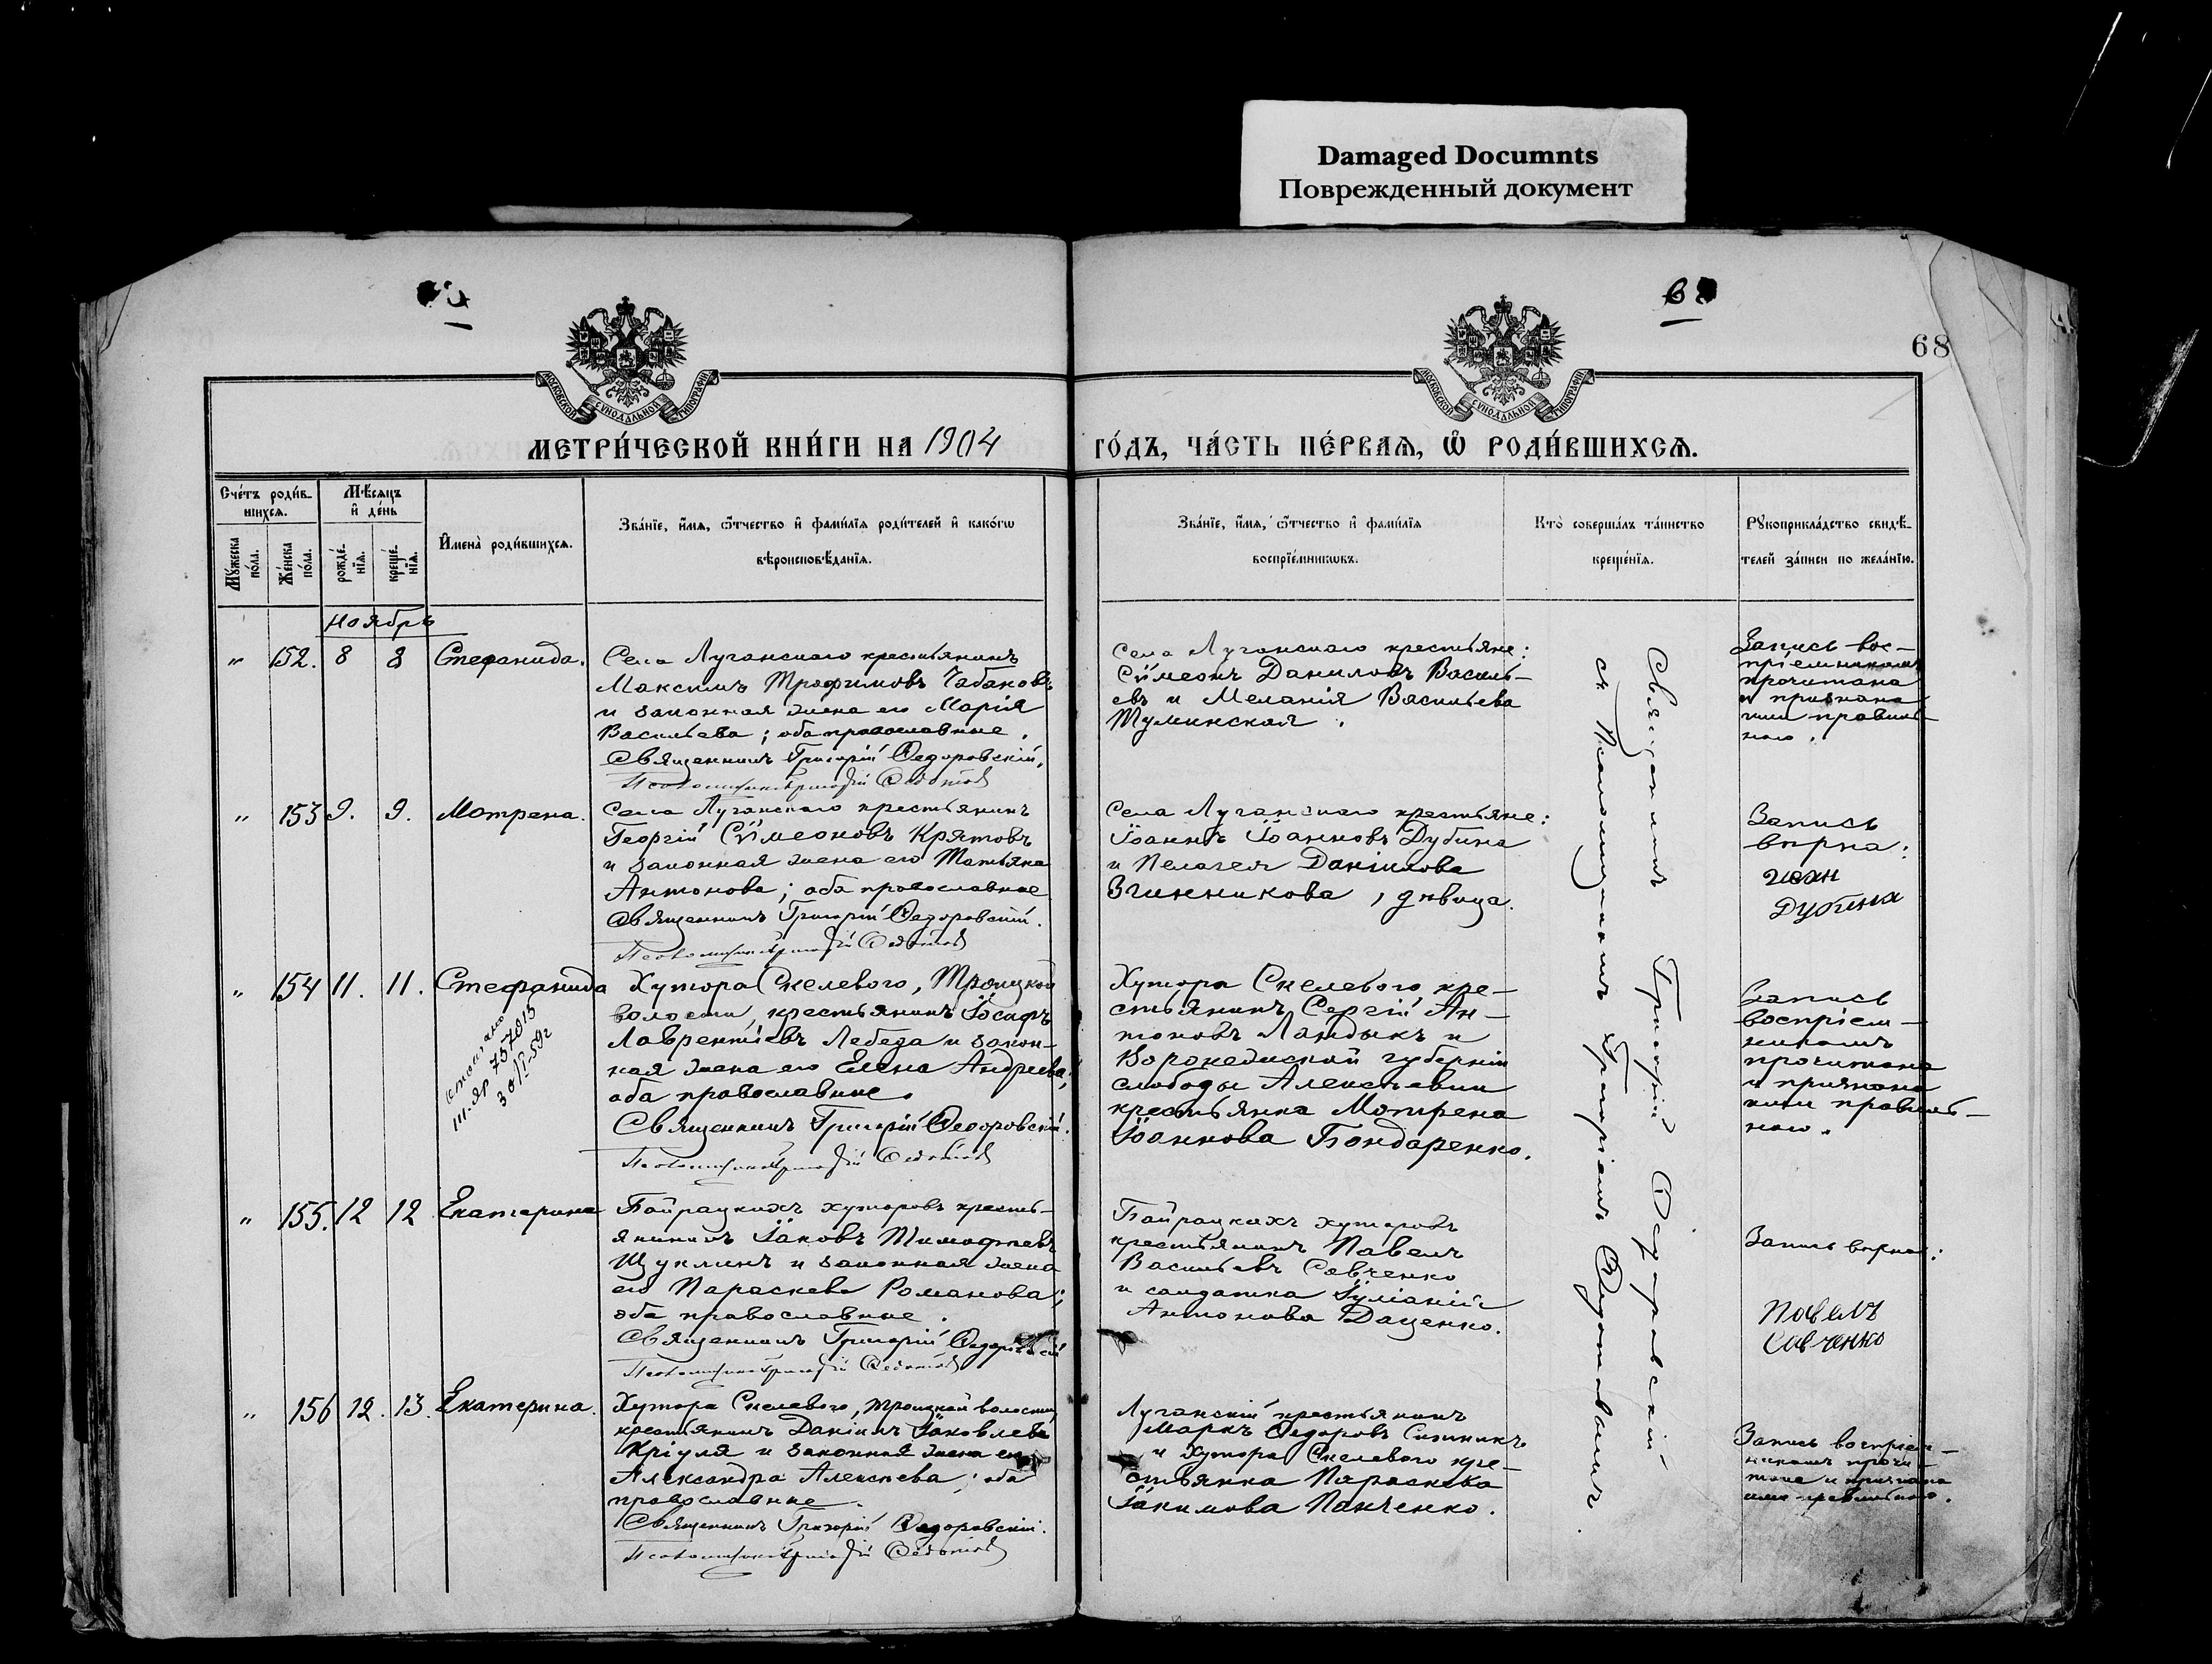 Damaged Documnts
Поврежденный документ
68
МОСКОВСКОЙ СУНОДАЛЬНОЙ ТИПОГРАФІИ
МОСКОВСКОЙ СУНОДАЛЬНОЙ ТИПОГРАФІИ
МЕТРИ́ЧЕСКОЙ КНИ́ГИ НА 1904
ГО́ДЪ, ЧА́СТЬ ПЕ́РВАѦ, Ѿ РОДИ́ВШИХСѦ.
Сче́тъ роди́в-
шихсѧ.
Мѣ́сѧцъ
и҆ де́нь
Мꙋ́жеска
по́ла.
Же́нска
по́ла.
рожде́-
нїѧ.
креще́-
нїѧ.
И҆мена̀ роди́вшихсѧ.
Зва́нїе, и҆́мѧ, ѻ҆́тчество и҆ фами́лїѧ роди́телей и҆ како́гѡ
вѣроисповѣ́данїѧ.
Зва́нїе, и҆́мѧ, ѻ҆́тчество и҆ фами́лїѧ
воспрїе́мникѡвъ.
Кто̀ соверша́лъ та́инство
креще́нїѧ.
Рꙋкоприкла́дство свидѣ́-
телей за́писи по жела́нїю.
Ноябрь
" 152. 8 8 Стефанида.
Села Луганскаго крестьянинъ
Максимъ Трофимовъ Чабановъ
и законная жена его Марія
Васильева; оба православные.
Священникъ Григорій Ѳедоровскій.
Псаломщикъ Григорій Ѳедотовъ
Села Луганскаго крестьяне:
Сѵмеонъ Даниловъ Василь-
евъ и Меланія Васильева
Туминская.
Запись вос-
пріемникамъ
прочитана
и признана
ими правиль-
ною.
" 153 9. 9. Мотрена.
Села Луганскаго крестьянинъ
Георгій Сѵмеоновъ Крятовъ
и законная жена его Татьяна
Антонова; оба православные
Священникъ Григорій Ѳедоровскій.
Псаломщикъ Григорій Ѳедотовъ
Села Луганскаго крестьяне:
Іоаннъ Іоанновъ Дубина
и Пелагея Даніилова
Згинникова, дѣвица.
Запись
вѣрна:
Иван
Дубина
" 154 11. 11. Стефанида
757015
Хутора Скелевого, Троицкой
волости, крестьянинъ Іосафъ
Лаврентіевъ Лебеда и закон-
ная жена его Елена Андреева;
оба православные.
Священникъ Григорій Ѳедоровскій.
Псаломщикъ Григорій Ѳедотовъ
Хутора Скелевого кре-
стьянинъ Сергій Ан-
тоновъ Ландыкъ и
Воронежской губерніи
слободы Алексѣевки
крестьянка Мотрена
Іоаннова Бондаренко.
Запись
воспріем-
никамъ
прочитана
и признана
ими правиль-
ною.
" 155. 12 12 Екатерина
Байрацкихъ хуторовъ кресть-
янинъ Іаковъ Тимофеевъ
Щуклинъ и законная жена
его Параскева Романова;
оба православные.
Священникъ Григорій Ѳедоровскій
Псаломщикъ Григорій Ѳедотовъ
Байрацкихъ хуторовъ
крестьянинъ Павелъ
Васильевъ Савченко
и солдатка Іуліанія
Антонова Даценко.
Запись вѣрна:
Павелъ
Савченко
" 156 12. 13. Екатерина.
Хутора Скелевого, Троицкой волости,
крестьянинъ Даніилъ Іаковлевъ
Кріуля и законная жена его
Александра Алексѣева; оба
православные.
Священникъ Григорій Ѳедоровскій.
Псаломщикъ Григорій Ѳедотовъ
Луганскій крестьянинъ
Маркъ Ѳедоровъ Ситникъ
и хутора Скелевого кре-
стьянка Параскева
Іакимова Панченко.
Запись воспріем-
никамъ прочи-
тана и признана
ими правильною.
Священникъ Григорій Ѳедоровскій
съ Псаломщикомъ Григоріемъ Ѳедотовымъ.